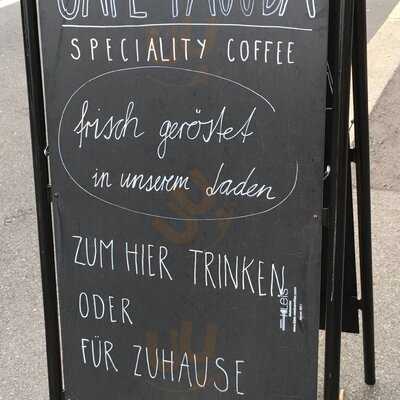 CAFÉ
SPECIALITY COFFEE
frisch geröstet
in unserem Laden
ZUM HIER TRINKEN
ODER
FÜR ZUHAUSE